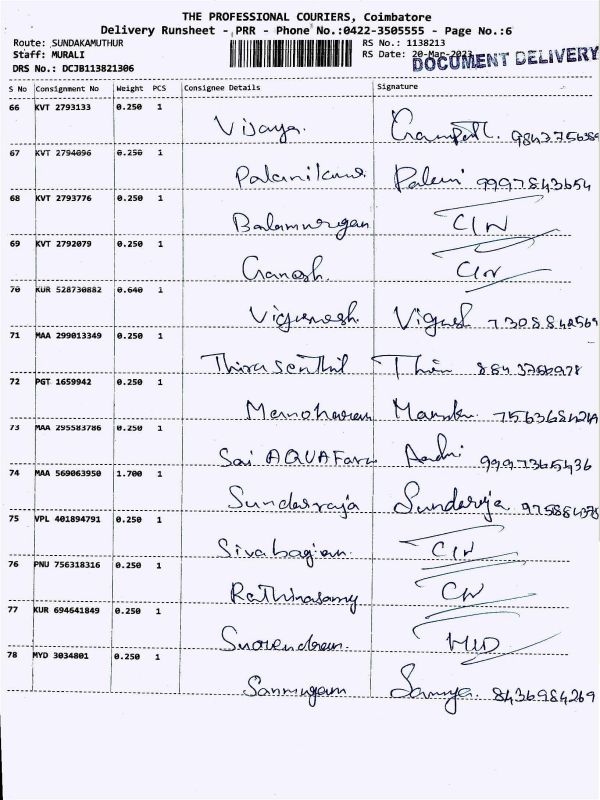 THE PROFESSIONAL COURIERS, Coimbatore
Delivery Runsheet - PRR - Phone No.:0422-3505555 - Page No.:6
Route: SUNDAKAMUTHUR RS No.: 1138213
Staff: MURALI RS Date: 20-Mar-2023
DOCUMENT DELIVERY
DRS No.: DCJB113821306
S No Consignment No Weight PCS Consignee Details Signature
66 KVT 2793133 0.250 1
Vijaya.
67 KVT 2794096 0.250 1
Palanikumar Palani 9997843654
68 KVT 2793776 0.250 1
Balamurugan
69 KVT 2792079 0.250 1
Ganesh.
70 KUR 528730882 0.640 1
Vignesh. Vignesh
71 MAA 299013349 0.250 1
Thirasenthil
72 PGT 1659942 0.250 1
Manoharan
73 MAA 295583786 0.250 1
Sai AQUA Farm 9997365436
74 MAA 569063950 1.700 1
Sundarraja Sundaraja
75 VPL 401894791 0.250 1
76 PNU 756318316 0.250 1
Rathinasamy
77 KUR 694641849 0.250 1
Surendran.
78 MYD 3034801 0.250 1
Sanmugam 8436984269